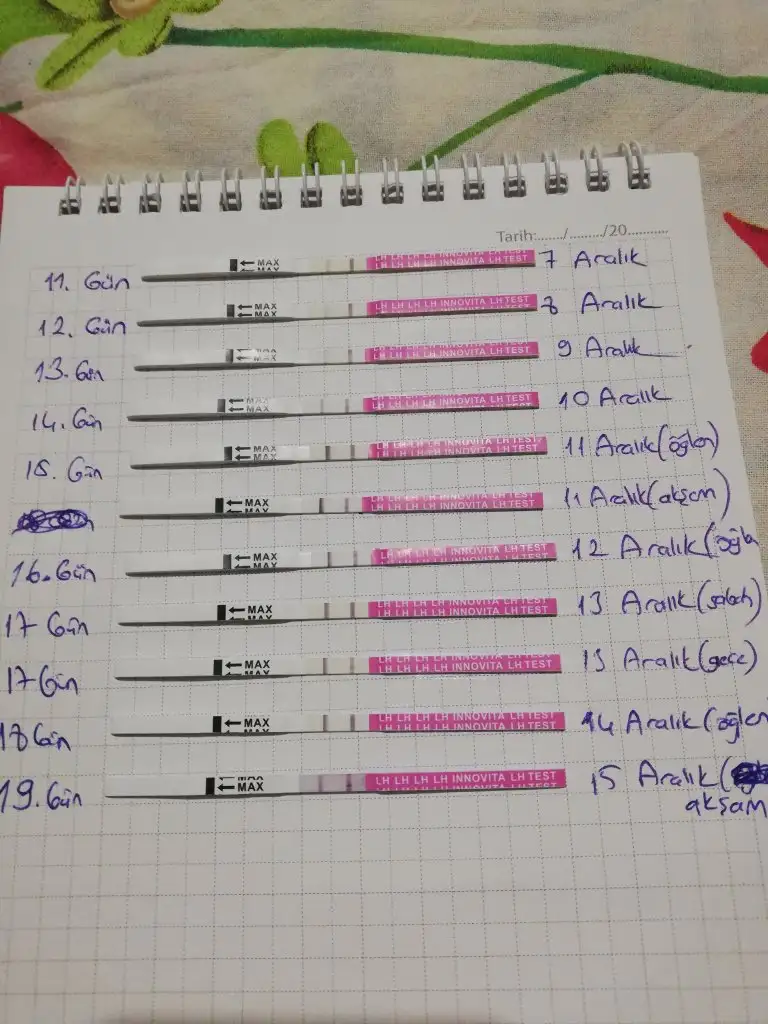 Tarih:....../......../20...........
11. Gün ← MAX LH LH LH LH INNOVITA LH TEST 7 Aralık
12. Gün ← MAX LH LH LH LH INNOVITA LH TEST 8 Aralık
13. Gün ← MAX LH LH LH LH INNOVITA LH TEST 9 Aralık
14. Gün ← MAX LH LH LH LH INNOVITA LH TEST 10 Aralık
15. Gün ← MAX LH LH LH LH INNOVITA LH TEST 11 Aralık (öğlen)
← MAX LH LH LH LH INNOVITA LH TEST 11 Aralık (akşam)
16. Gün ← MAX LH LH LH LH INNOVITA LH TEST 12 Aralık (öğle
17 Gün ← MAX LH LH LH LH INNOVITA LH TEST 13 Aralık (sabah)
17 Gün ← MAX LH LH LH LH INNOVITA LH TEST 13 Aralık (gece)
18 Gün ← MAX LH LH LH LH INNOVITA LH TEST 14 Aralık (öğlen
19. Gün ← MAX LH LH LH LH INNOVITA LH TEST 15 Aralık (
akşam